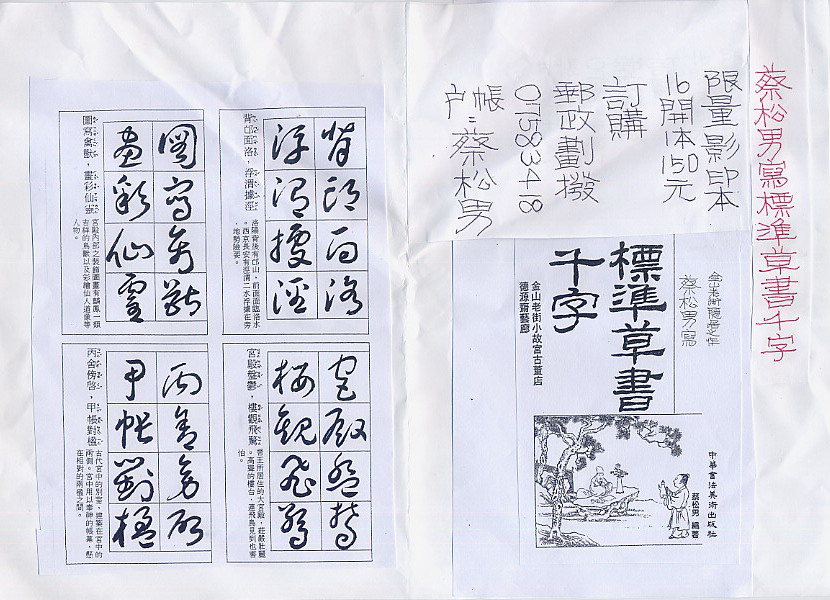 蔡松男寫標準草書千字
限量影印本
16開本150元
訂購
郵政劃撥
07583418
帳
戶：蔡松男
金山老街隱居之作
蔡松男寫
標準草書
千字
金山老街小故宮古董店
德源齋藝廊
中華書法美術出版社
蔡松男 編著
背邙面洛
浮渭據涇
背邙面洛，浮渭據涇
洛陽背後有邙山，前面面臨洛水
。西京長安有涇渭二水浮據在旁
，地勢險要。
圖寫禽獸
畫彩仙靈
圖寫禽獸，畫彩仙靈
宮殿內部之裝飾圖畫有麟鳳一類
吉祥的鳥獸以及彩繪仙人道像等
人物。
宮殿盤鬱
樓觀飛驚
宮殿盤鬱，樓觀飛驚
帝王所居住的大宮殿，莊嚴壯麗
。高聳的樓台，連飛鳥見到也害
怕。
丙舍傍啓
甲帳對楹
丙舍傍啓，甲帳對楹
古代宮中的別室，建築在宮中的
兩側。宮中用以奉神的帳幕，懸
在相對的兩楹之間。